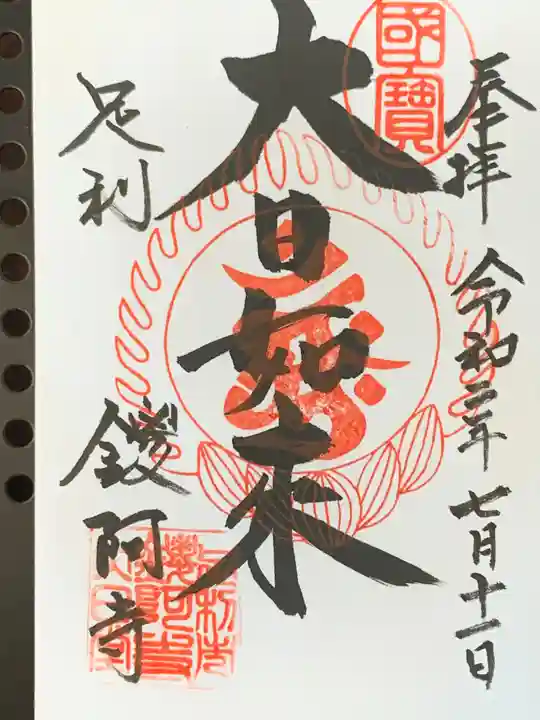 奉拝 令和二年七月十一日
國寶
大日如来
足利 鑁阿寺